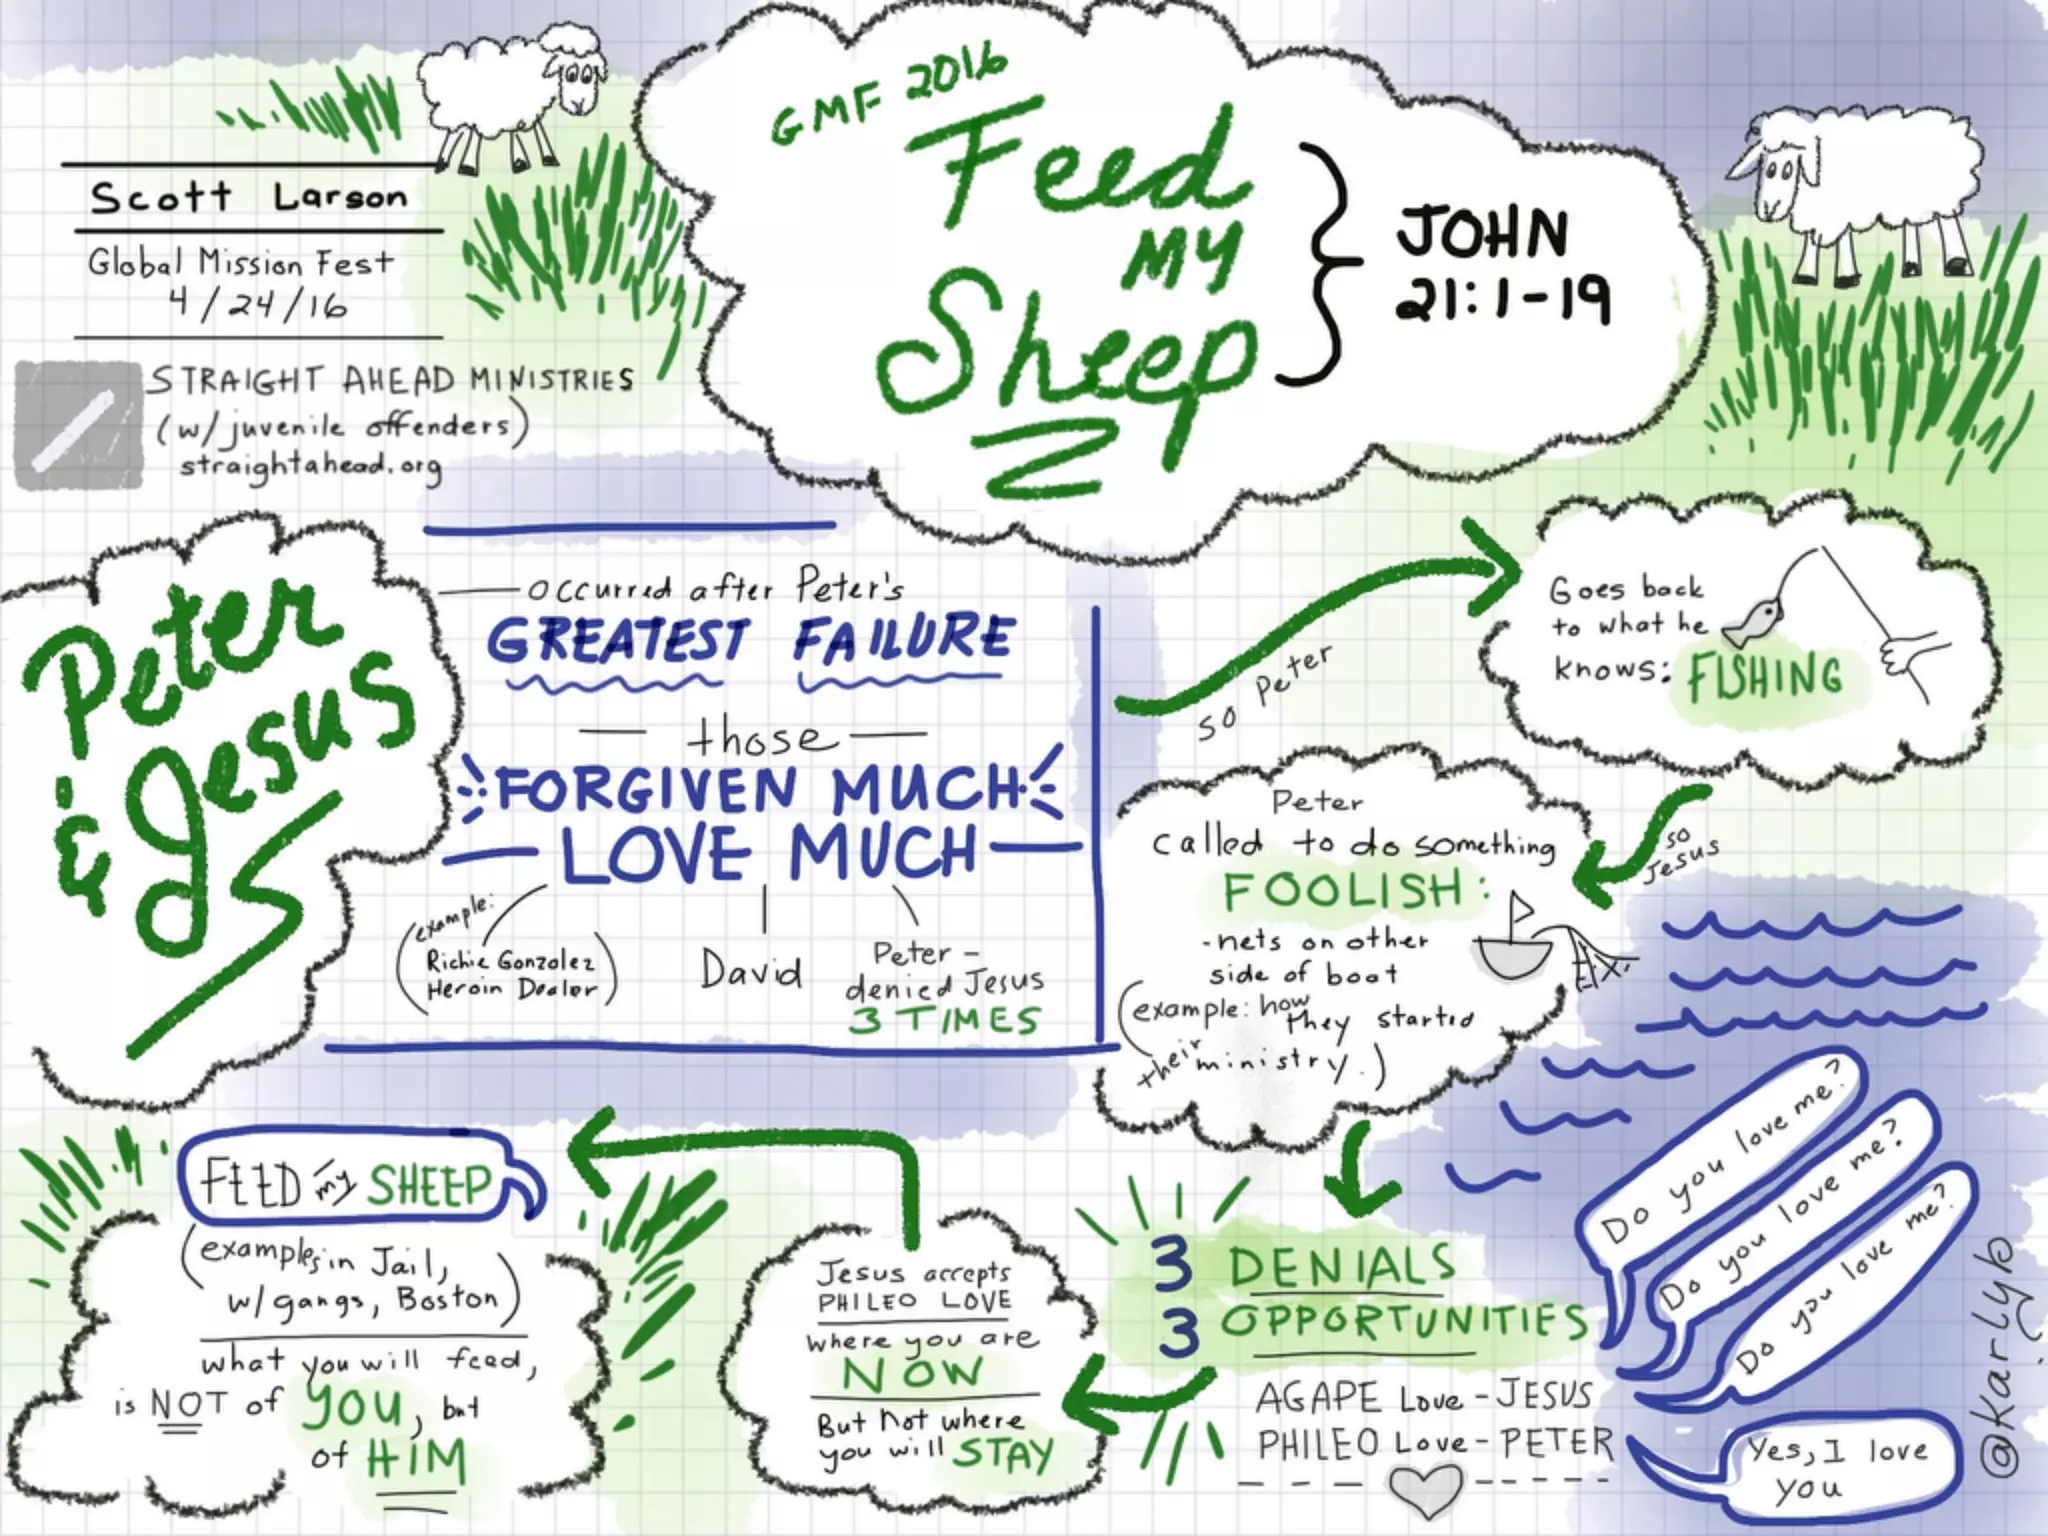 GMF 2016
Feed
MY
Sheep
JOHN
21:1-19
Scott Larson
Global Mission Fest
4/24/16
STRAIGHT AHEAD MINISTRIES
(w/ juvenile offenders)
straightahead.org
Peter
& Jesus
occurred after Peter's
GREATEST FAILURE
those
FORGIVEN MUCH
LOVE MUCH
(example:
Richie Gonzolez
Heroin Dealer)
David
Peter -
denied Jesus
3 TIMES
so Peter
Goes back
to what he
knows: FISHING
so
Jesus
Peter
called to do something
FOOLISH:
-nets on other
side of boat
(example: how
they started
their ministry.)
3 DENIALS
3 OPPORTUNITIES
AGAPE Love - JESUS
PHILEO Love - PETER
Do you love me?
Do you love me?
Do you love me?
Yes, I love
you
Jesus accepts
PHILEO LOVE
where you are
NOW
But not where
you will STAY
FEED my SHEEP
(examples in Jail,
w/ gangs, Boston)
what you will feed,
is NOT of YOU, but
of HIM
@karlyb